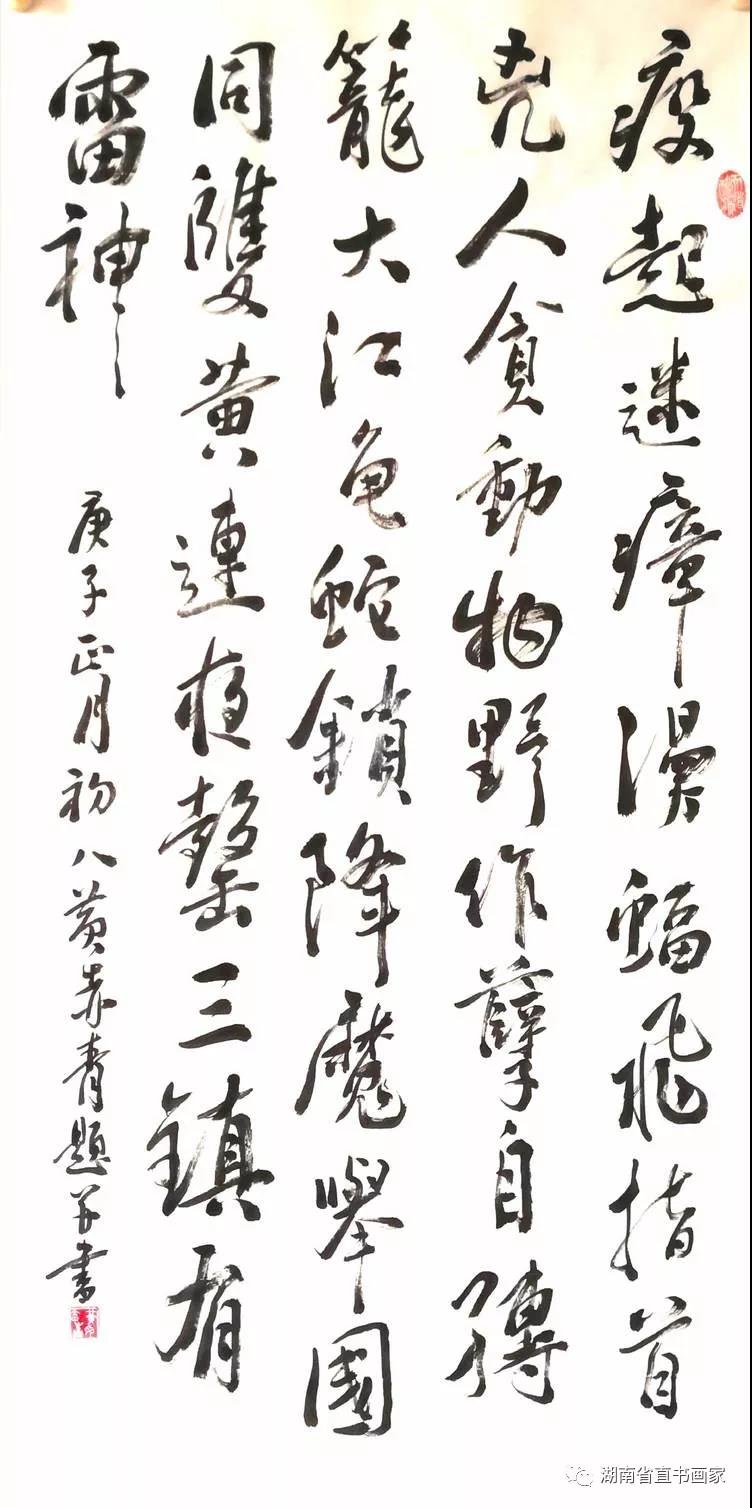 疫起迷瘴漫蝠飛指首
兇人貪動物野作孽自傳
籠大江龟蛇鎖降魔舉國
同雙黄連夜罄三鎮有
雷神
庚子正月初八黄赤青題并書
湖南省直书画家